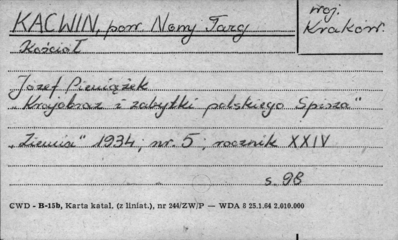 KACWIN, pow. Nowy Targ
woj. Kraków.
Kościół
Józef Pieniążek
„Krajobraz i zabytki polskiego Spisza"
„Ziemia" 1934; nr. 5; rocznik XXIV
s. 98
CWD - B-15b, Karta katal. (z liniat.), nr 244/ZW/P — WDA 8 25.1.64 2.010.000